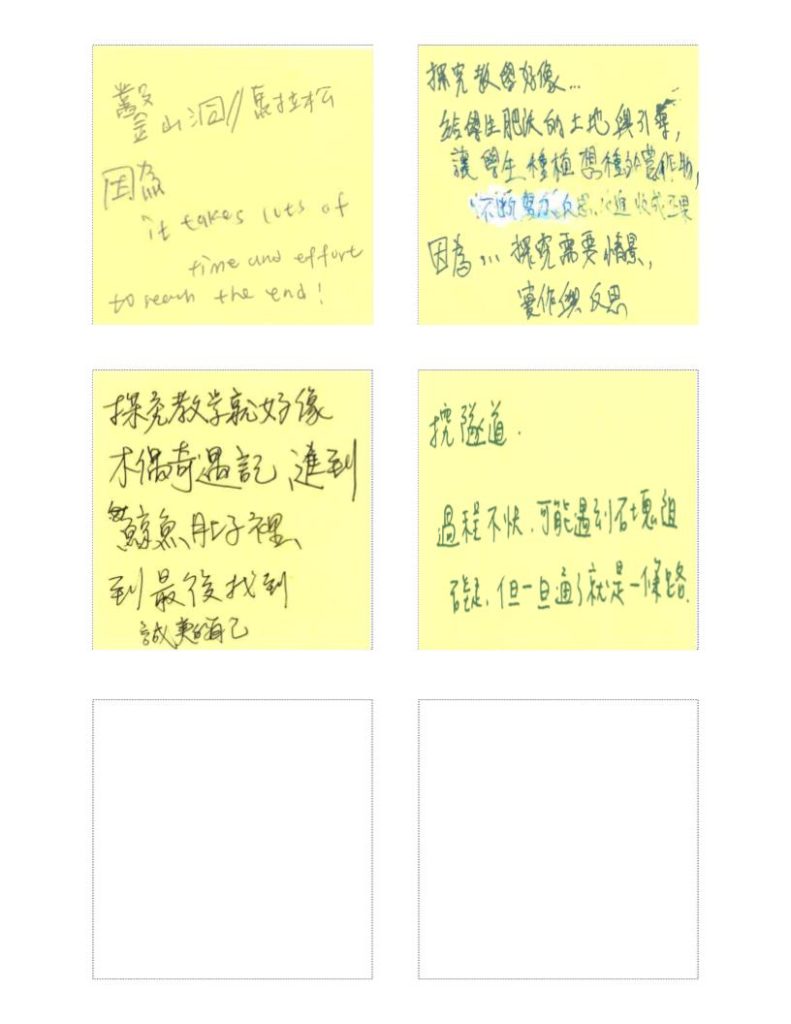 鑿山洞//馬拉松
因為
it takes lots of
time and effort
to reach the end!
探究教學好像...
給學生肥沃的土地與引導,
讓學生種植想種的農作物,
不斷努力
因為... 探究需要情景,
實作與反思
探究教学就好像
木偶奇遇記 進到
鯨魚肚子裡、
到最後找到
誠實的自己
挖隧道.
過程不快.可能遇到石塊阻
碍.但一旦通了就是一條路.